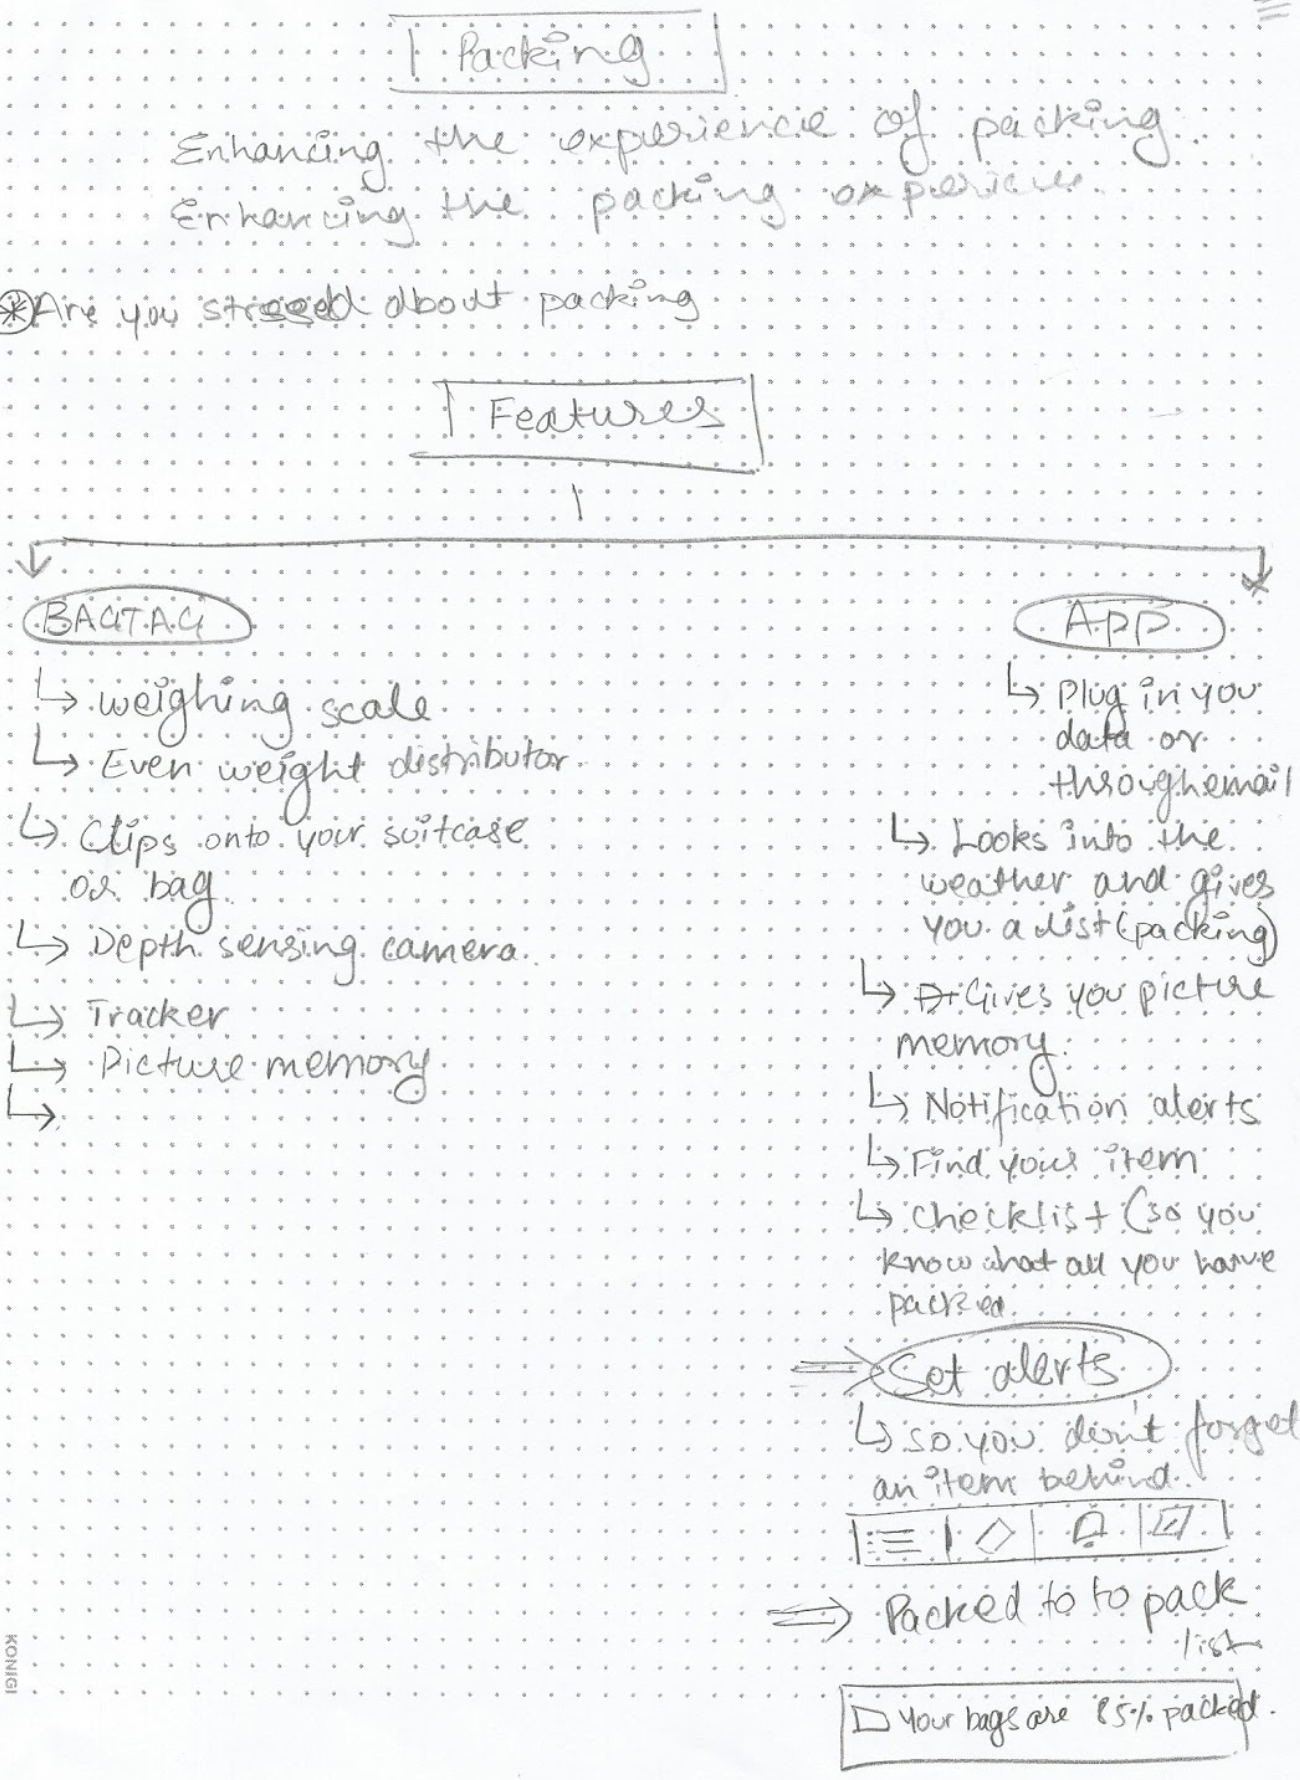 Packing
Enhancing the experience of packing
Enhancing the packing experience
Are you stressed about packing
Features
BAGTAG
weighing scale
Even weight distributor
Clips onto your suitcase
or bag
Depth sensing camera
Tracker
Picture memory
App
Plug in you
data or
through email
Looks into the
weather and gives
you a list (packing)
Gives you picture
memory
Notification alerts
Find your item
checklist (so you
know what all you have
packed
Set alerts
so you don't forget
an item behind.
Packed to to pack
list
Your bags are 85% packed.
KONIGI